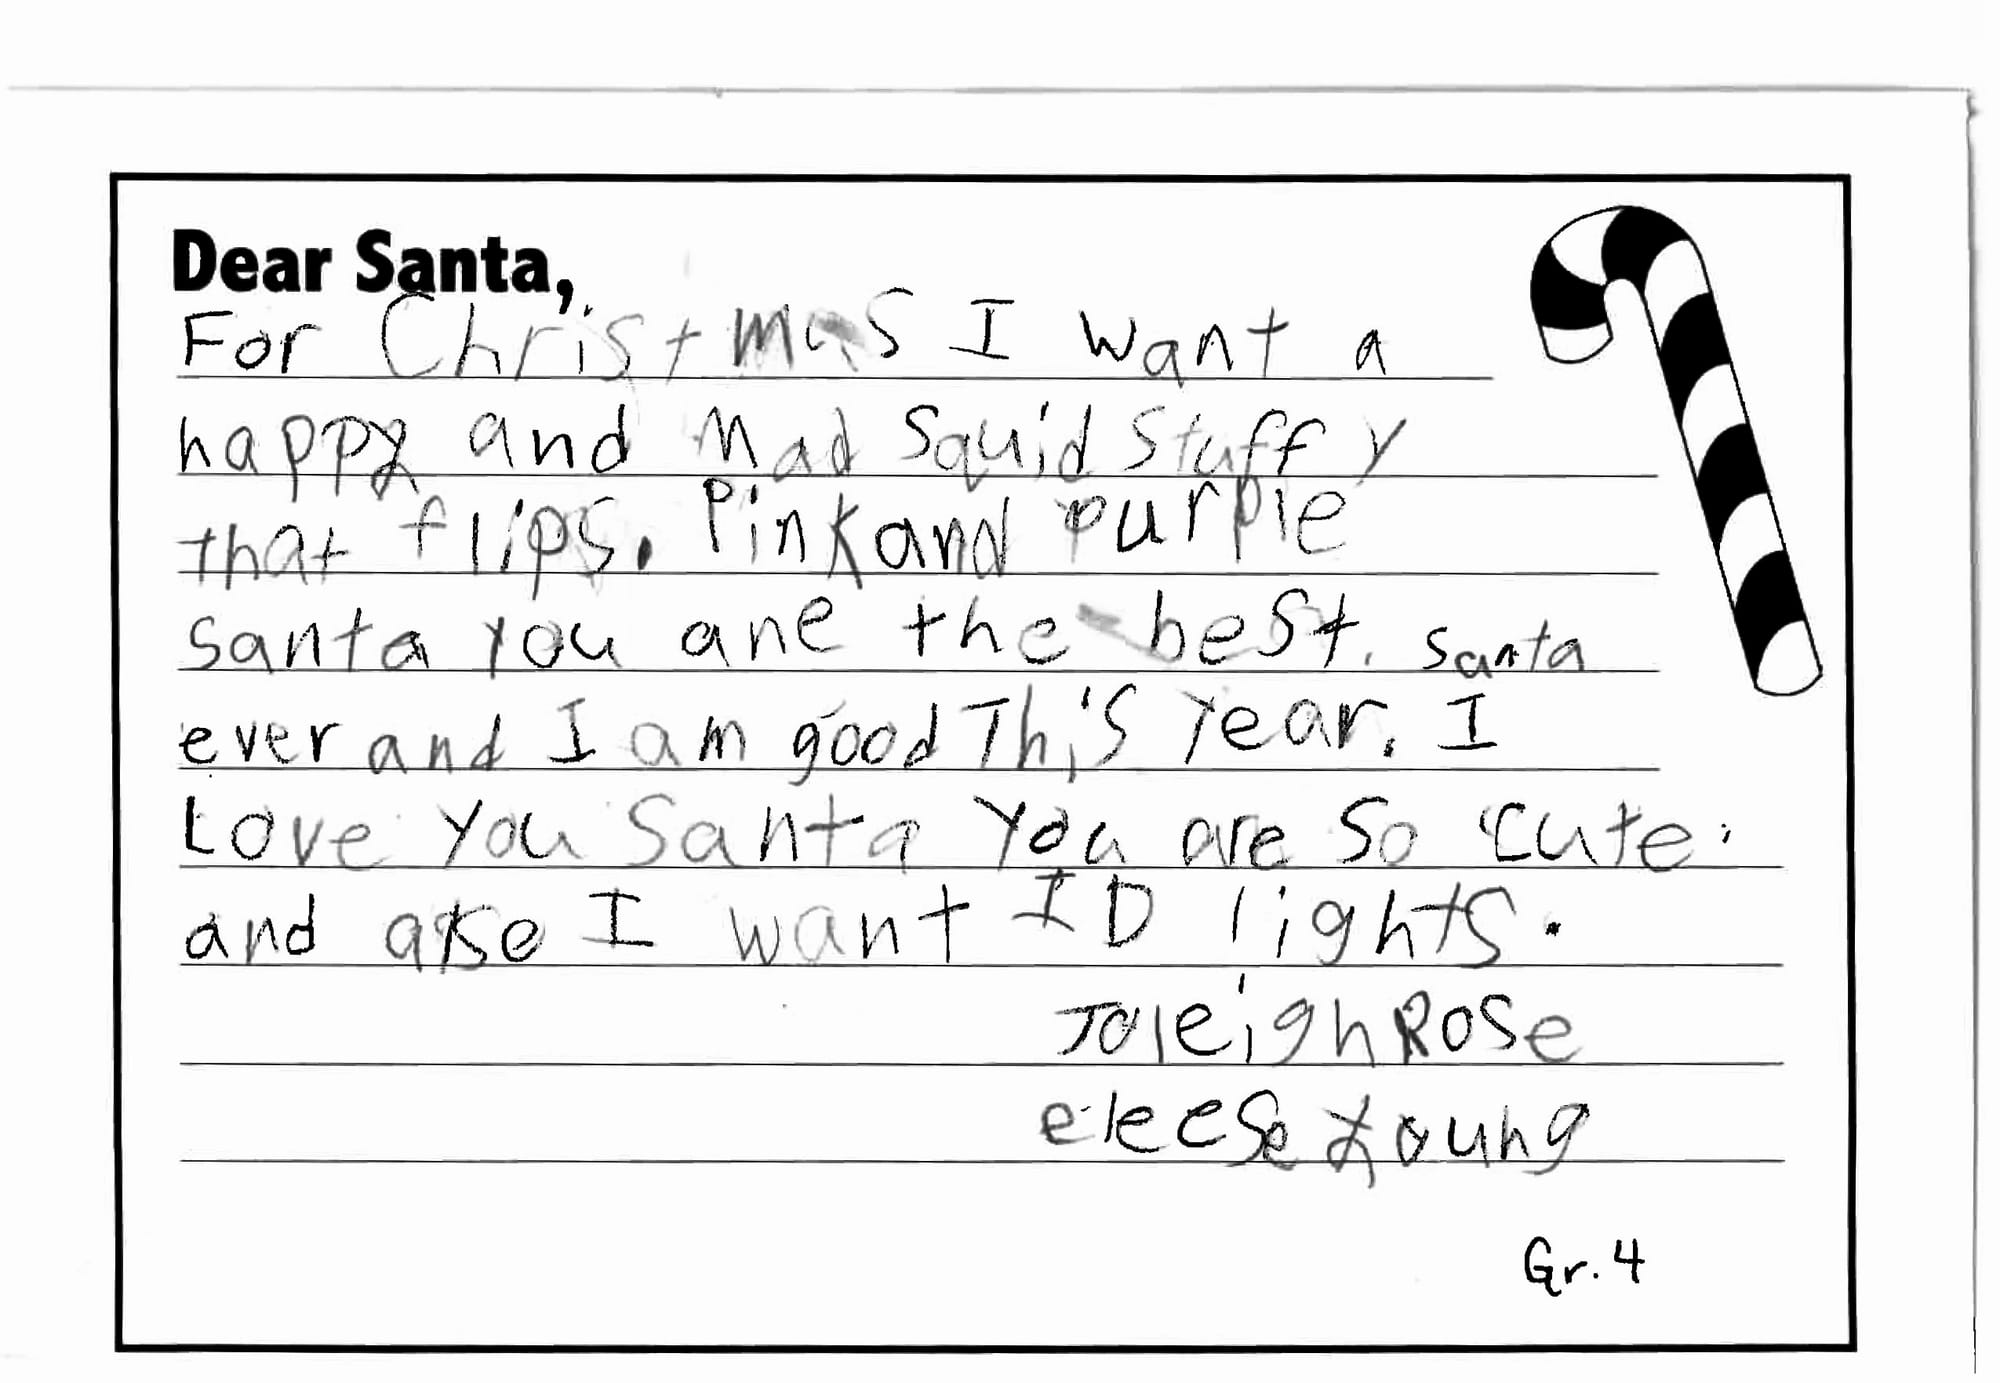 Dear Santa,
For Christmas I want a
happy and Mad Squid Stuffy
that flips. Pink and purple
Santa you are the best. Santa
ever and I am good This Year. I
Love you Santa You are so cute.
and also I want ID lights.
Joleigh Rose
eleese Young
Gr. 4